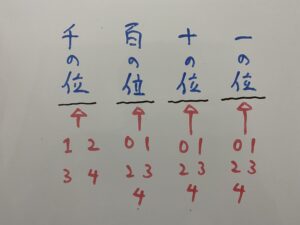 千の位 百の位 十の位 一の位
1 2 0 1 0 1 0 1
3 4 2 3 2 3 2 3
4 4 4